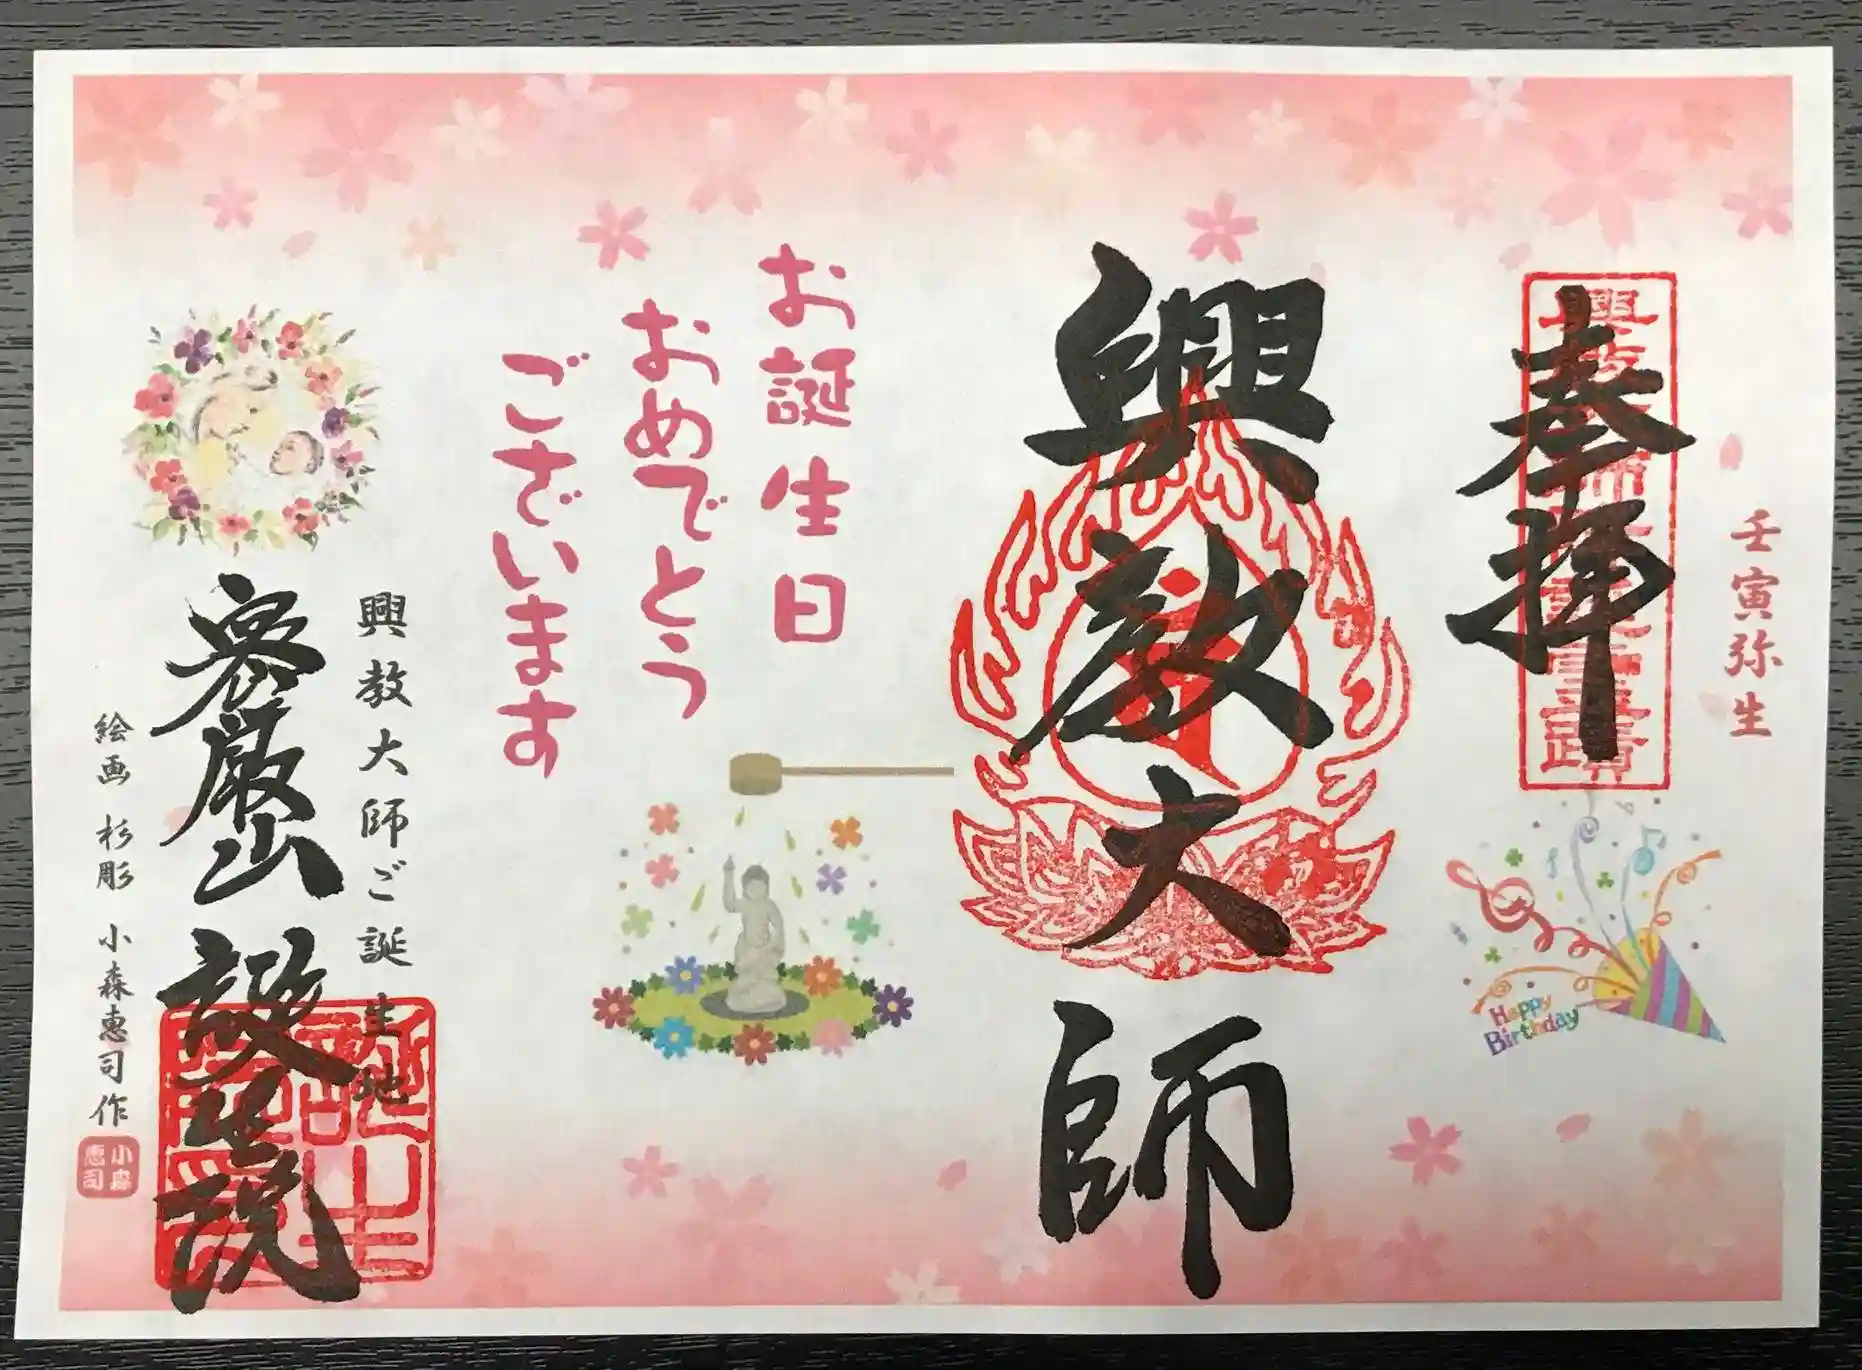 壬寅弥生
奉拝
興教大師
Happy
Birthday
お誕生日
おめでとう
ございます
興教大師ご誕生地
密厳山 誕生院
絵画 杉彫 小森惠司作
小森
惠司